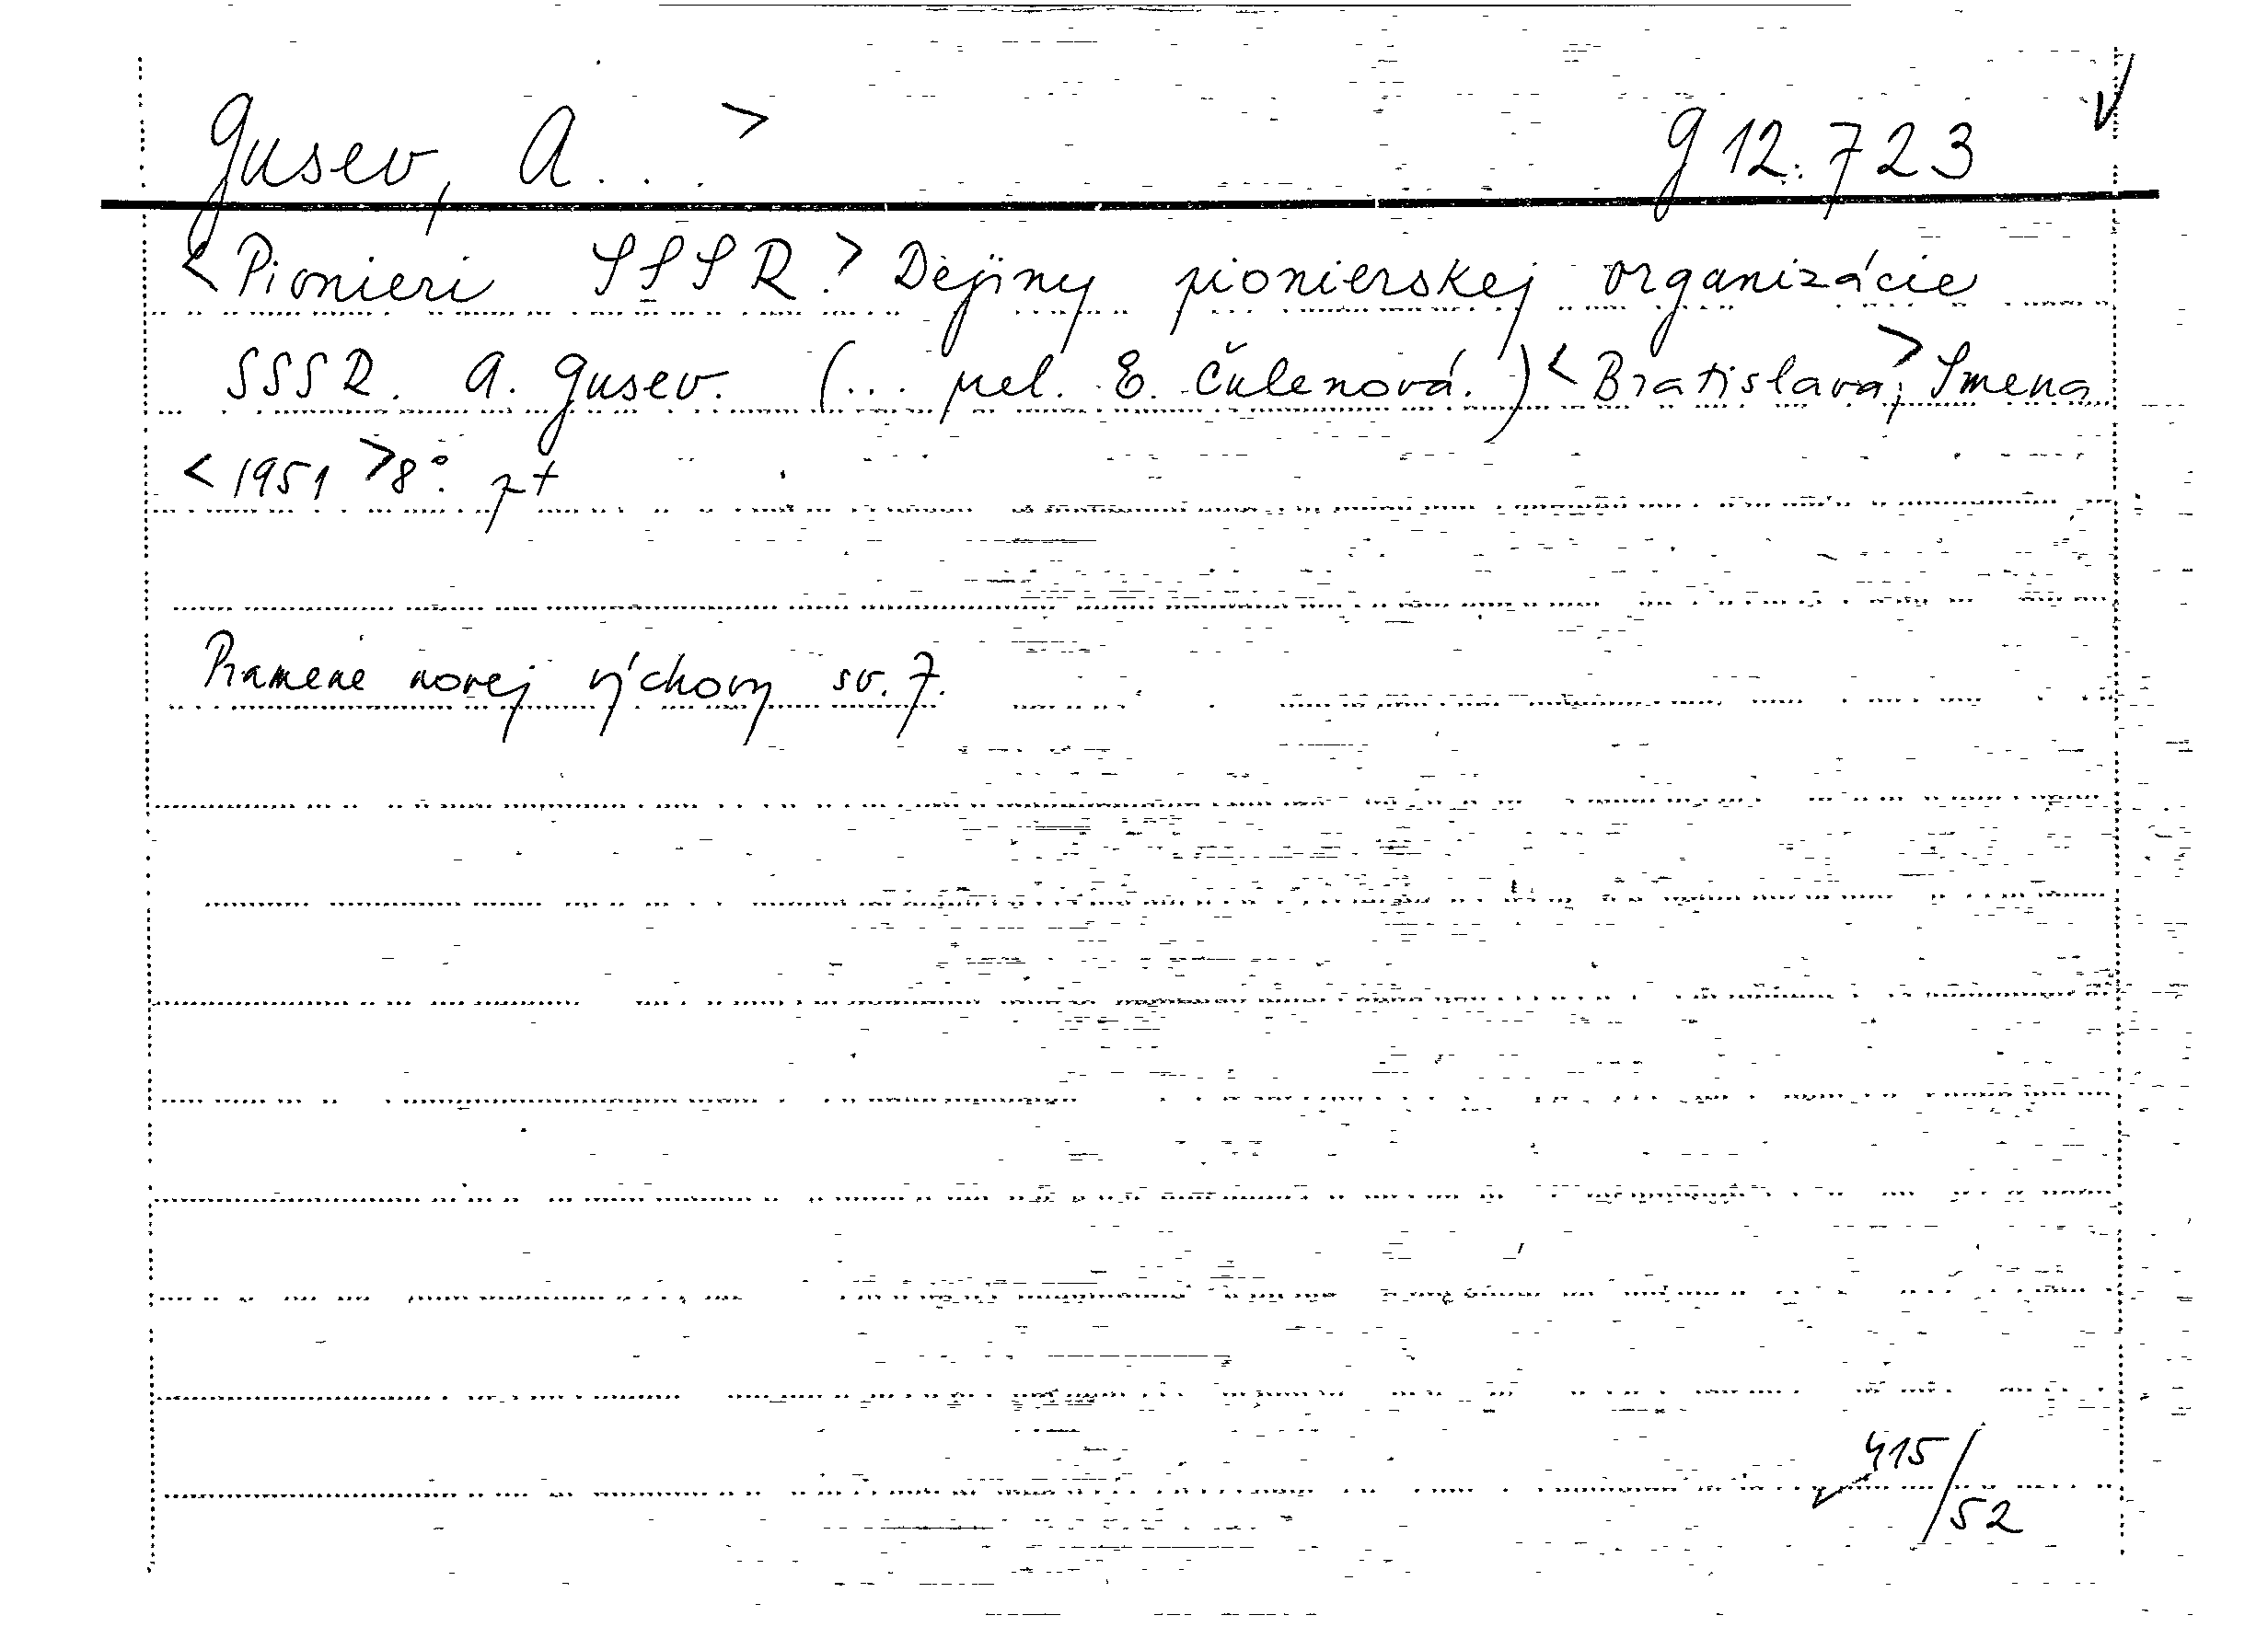 Gusev, A... > G 12.723
<Pionieri SSSR.> Dějiny pionierskej organizácie
SSSR. A. Gusev. (... prel. E. Čulenová.) <Bratislava,> Smena
<1951> 8°.
Pramene novej výchovy sv. 7.
415/52